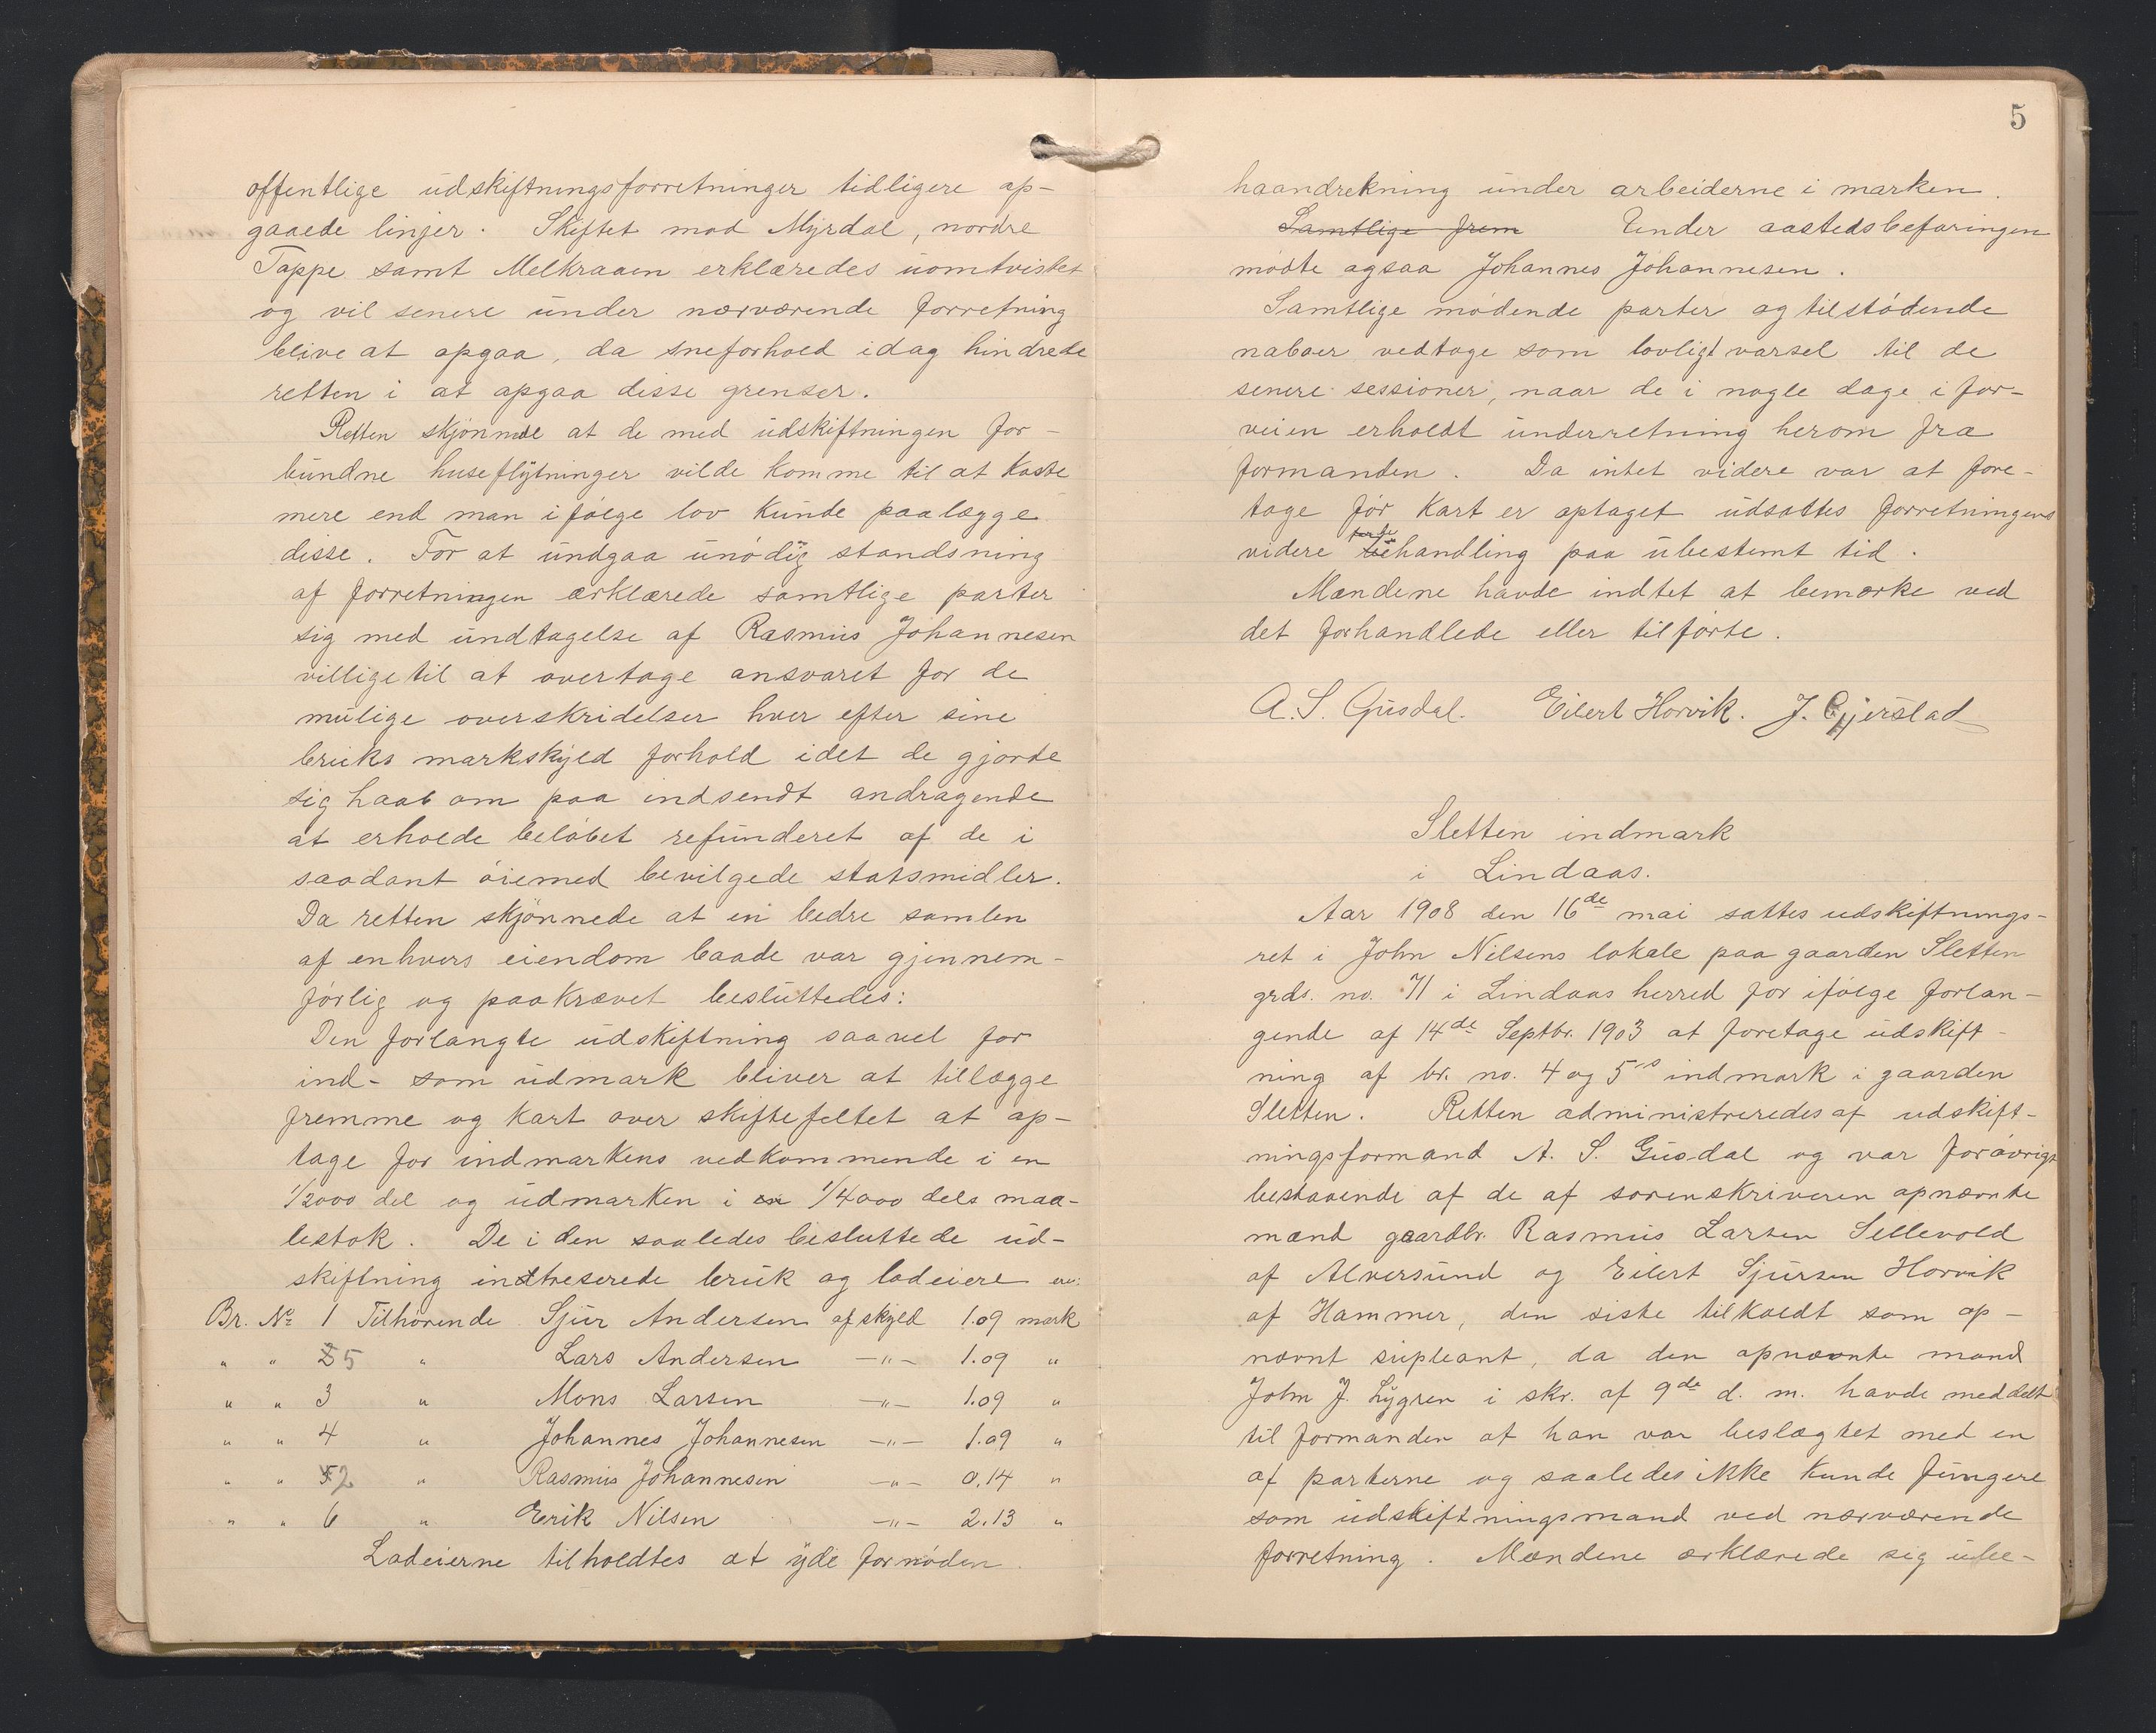 offentlige udskiftningsforretninger tidligere op-
gaaede linjer. Skiftet mod Myrdal, nordre
Tappe samt Melkraaen erklæredes uomtvistet
og vil senere under nærværende forretning
blive at opgaa, da sneforhold idag hindrede
retten i at opgaa disse grenser.
Retten skjønnede at de med udskiftningen for-
bundne huseflytninger vilde komme til at koste
mere end man ifølge lov kunde paalægge
disse. For at undgaa unødig standsning
af forretningen erklærede samtlige parter
sig med undtagelse af Rasmus Johannesen
villige til at overtage ansvaret for de
mulige overskridelser hver efter sine
bruks markskyld forhold idet de gjorde
sig haab om paa indsendt andragende
at erholde beløbet refunderet af de i
saadant øiemed bevilgede statsmidler.
Da retten skjønnede at en bedre samlen
af enhvers eiendom baade var gjennem-
førlig og paakrævet besluttedes:
Den forlangte udskiftning saavel for
ind- som udmark bliver at tillægge
fremme og kart over skiftefeltet at op-
tage for indmarkens vedkommende i en
1/2000 del og udmarken i en 1/4000 dels maa-
lestok. De i den saaledes besluttede ud-
skiftning intreserede bruk og lodeiere er:
Br. No 1 Tilhørende Sjur Andersen af skyld 1.09 mark
" " 5 " Lars Andersen -"- 1.09 "
" " 3 " Mons Larsen -"- 1.09 "
" " 4 " Johannes Johannesen -"- 1.09 "
" " 2 " Rasmus Johannesen -"- 0.14 "
" " 6 " Erik Nilsen -"- 2.13 "
Lodeierne tilholdtes at yde fornøden
5
haandrekning under arbeiderne i marken.
Samtlige frem Under aastedsbefaringen
mødte ogsaa Johannes Johannesen.
Samtlige mødende parter og tilstødende
naboer vedtoge som lovligt varsel til de
senere sessioner, naar de i nogle dage i for-
veien erholdt underretning herom fra
formanden. Da intet videre var at fore-
tage før kart er optaget udsattes forretningens
videre behandling paa ubestemt tid.
Mændene havde indtet at bemærke ved
det forhandlede eller tilførte.
A. S. Gusdal. Eilert Horvik. J. Gjerstad
Sletten indmark
i Lindaas.
Aar 1908 den 16de mai sattes udskiftnings-
ret i John Nilsens lokale paa gaarden Sletten
grds. no. 71 i Lindaas herred for ifølge forlan-
gende af 14de Septbr. 1903 at foretage udskift-
ning af br. no. 4 og 5s indmark i gaarden
Sletten. Retten administreredes af udskift-
ningsformand A. S. Gusdal og var forøvrigt
bestaaende af de af sorenskriveren opnævnte
mænd gaardbr. Rasmus Larsen Sellevold
af Alversund og Eilert Sjursen Horvik
af Hammer, den siste tilkaldt som op-
nævnt supleant, da den opnævnte mand
John J. Lygren i skr. af 9de d. m. havde meddelt
til formanden at han var beslægtet med en
af parterne og saaledes ikke kunde fungere
som udskiftningsmand ved nærværende
forretning. Mændene erklærede sig ube-